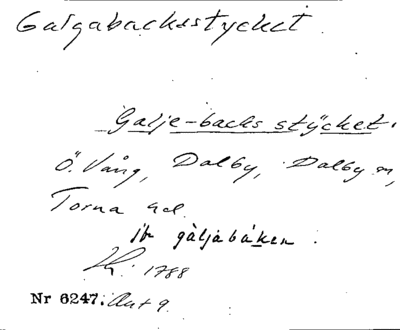 Galgabacksstycket
Galje-backs stÿcket.
Ö. Vång, Dalby, Dalby sn,
Torna hd.
jfr gàljabàken.
LK. 1788
Nr 6247. Akt 9.